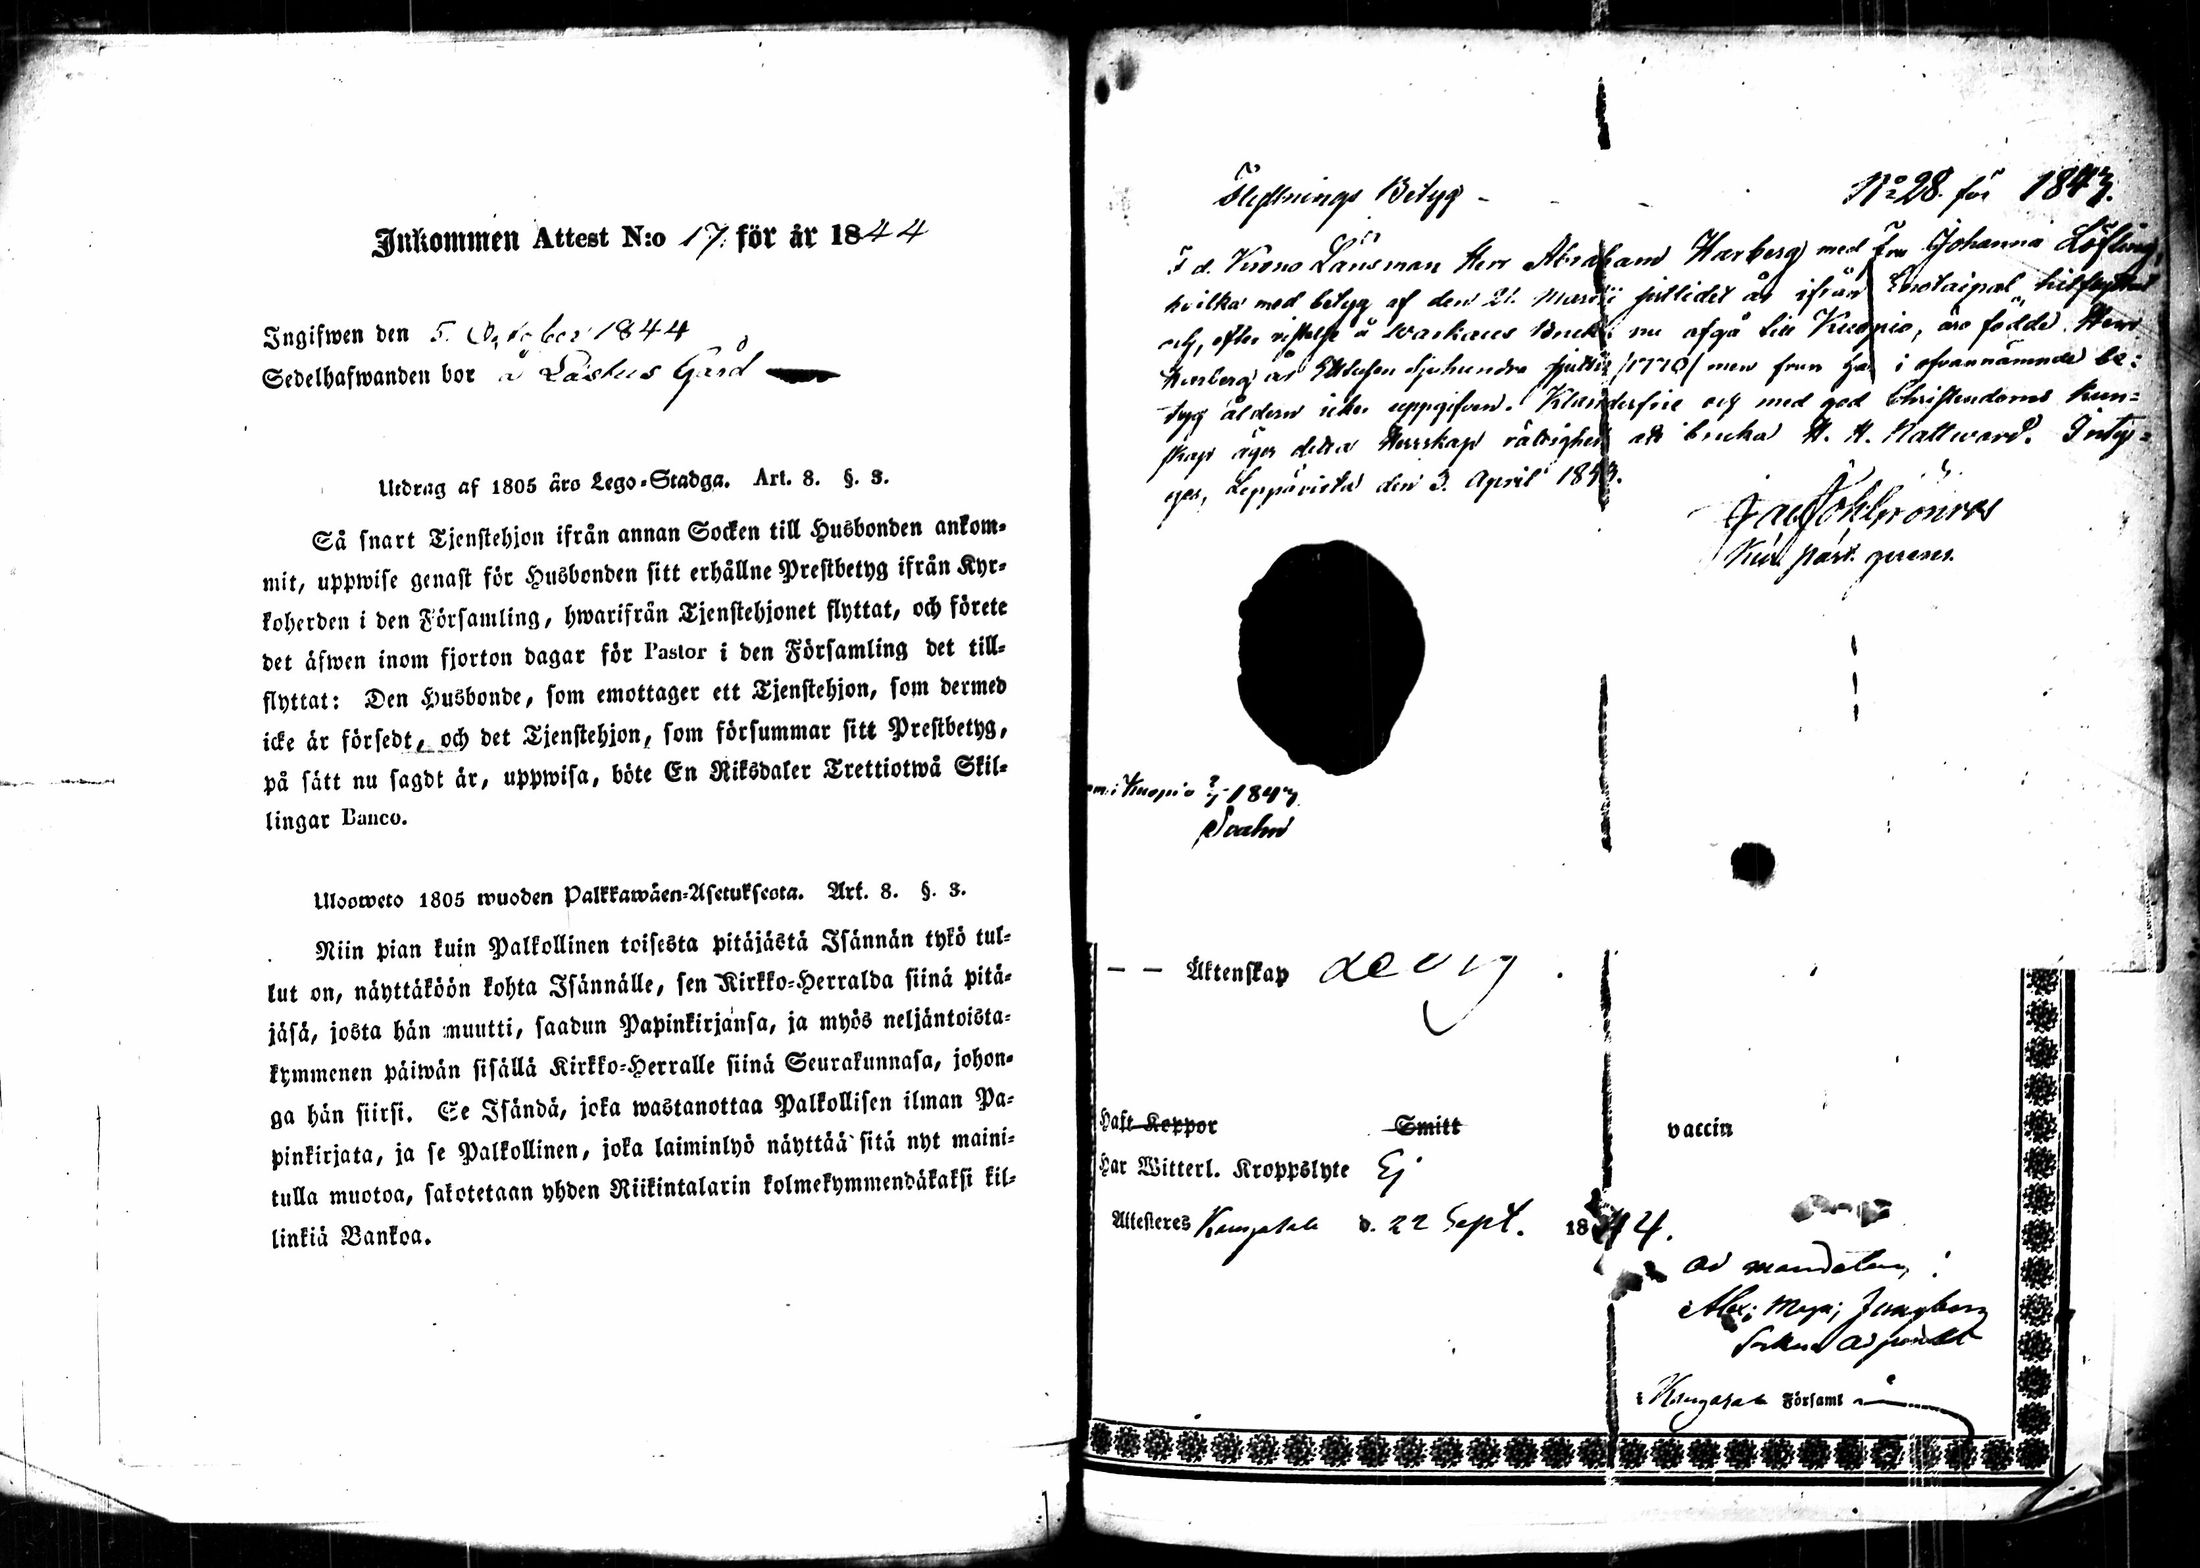 Inkommen Attest N:o 17. för år 1844
Ingifwen den 5. October 1844
Sedelhafwanden bor å Lastus Gård
Utdrag af 1805 års Lego-Stadga. Art. 8. §. 3.
Så snart Tjenstehjon ifrån annan Socken till Husbonden ankom-
mit, uppwise genast för Husbonden sitt erhållne Prestbetyg ifrån Kyr-
koherden i den Församling, hwarifrån Tjenstehjonet flyttat, och förete
det äfwen inom fjorton dagar för Pastor i den Församling det till-
flyttat: Den Husbonde, som emottager ett Tjenstehjon, som dermed
icke är försedt, och det Tjenstehjon, som försummar sitt Prestbetyg,
på sätt nu sagdt är, uppwisa, böte En Riksdaler Trettiotwå Skil-
lingar Banco.
Ulosweto 1805 wuoden Palkkawäen-Asetuksesta. Art. 8. §. 3.
Niin pian kuin Palkollinen toisesta pitäjästä Isännän tykö tul-
lut on, näyttäköön kohta Isännälle, sen Kirkko-Herralda siinä pitä-
jäsä, josta hän muutti, saadun Papinkirjansa, ja myös neljäntoista-
kymmenen päiwän sisällä Kirkko-Herralle siinä Seurakunnasa, johon-
ga hän siirsi. Se Isändä, joka wastanottaa Palkollisen ilman Pa-
pinkirjata, ja se Palkollinen, joka laiminlyö näyttää sitä nyt maini-
tulla muotoa, sakotetaan yhden Riikintalarin kolmekymmendäkaksi kil-
linkiä Bankoa.
Flyttnings Betyg - No 28. för 1843.
F. d. Krono Länsman Herr Abraham Warberg med Fru Johanna Löfling,
hvilka med betyg af den 21. Martii sistlidet år ifrån hitflyttat
och, efter vistelse å Warkaus Bruk, nu afgå till Kuopio, äro födde Herr
Warberg år Ettusen sjuhundra sjuttio /1770/ men frun har i ofvannämnde be-
tyg åldern icke uppgifven. Klanderfrie och med god Christendoms kun-
skap äger detta Herrskap rättighet att bruka H. H. Nattward. Intyg-
gas, Leppävirta den 3. April 1843.
Kuopio 1843
Äktenskap ledig
Haft Koppor Smitt vaccin
Har Witterl. Kroppslyte Ej
Attesteres Kangasala d. 22 Sept. 1844.
ad mandatum:
Alex: Magn; Ljungberg
adjunct
i Kangasala Församl